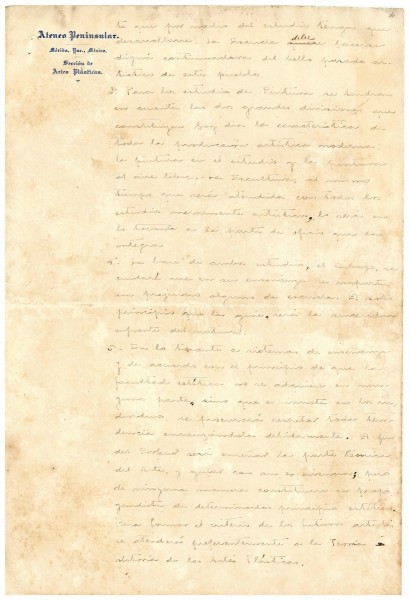 Ateneo Peninsular.
Mérida, Yuc., México.
Sección de
Artes Plásticas.
te que por medio del estudio tenga que
desarrollarse, la Escuela debe hacerse
digna continuadora del bello pasado ar-
tístico de este pueblo.
3ª Para los estudios de Pintura se tendrán
en cuenta las dos grandes divisiones que
constituyen hoy día la característica de
toda la producción artística moderna:
la pintura en el estudio y la pintura
al aire libre. La Escultura, al mismo
tiempo que será atendida con todos los
estudios meramente artísticos, lo será en
lo tocante a la parte de oficio que la
integra.
4ª La base de ambos estudios, el dibujo, se
cuidará que en su enseñanza no imparta
en prejuicios algunos de escuelas. El solo
principio que la guíe, será la sinceridad
enfrente del natural.
5ª En lo tocante a sistemas de enseñanza
y de acuerdo con el principio de que la
facultad estética no se adquiere en nin-
guna parte, sino que es innata en los in-
dividuos, se procurará respetar toda ten-
dencia encauzándola debidamente. El fin
del Profesor será enseñar la parte técnica
del Arte, y guiar con
de ninguna manera constituirse en propa-
gandista de determinados principios estéticos.
Para formar el criterio de los futuros artistas
se atenderá preferentemente a la Teoría e
Historia de las Artes Plásticas.